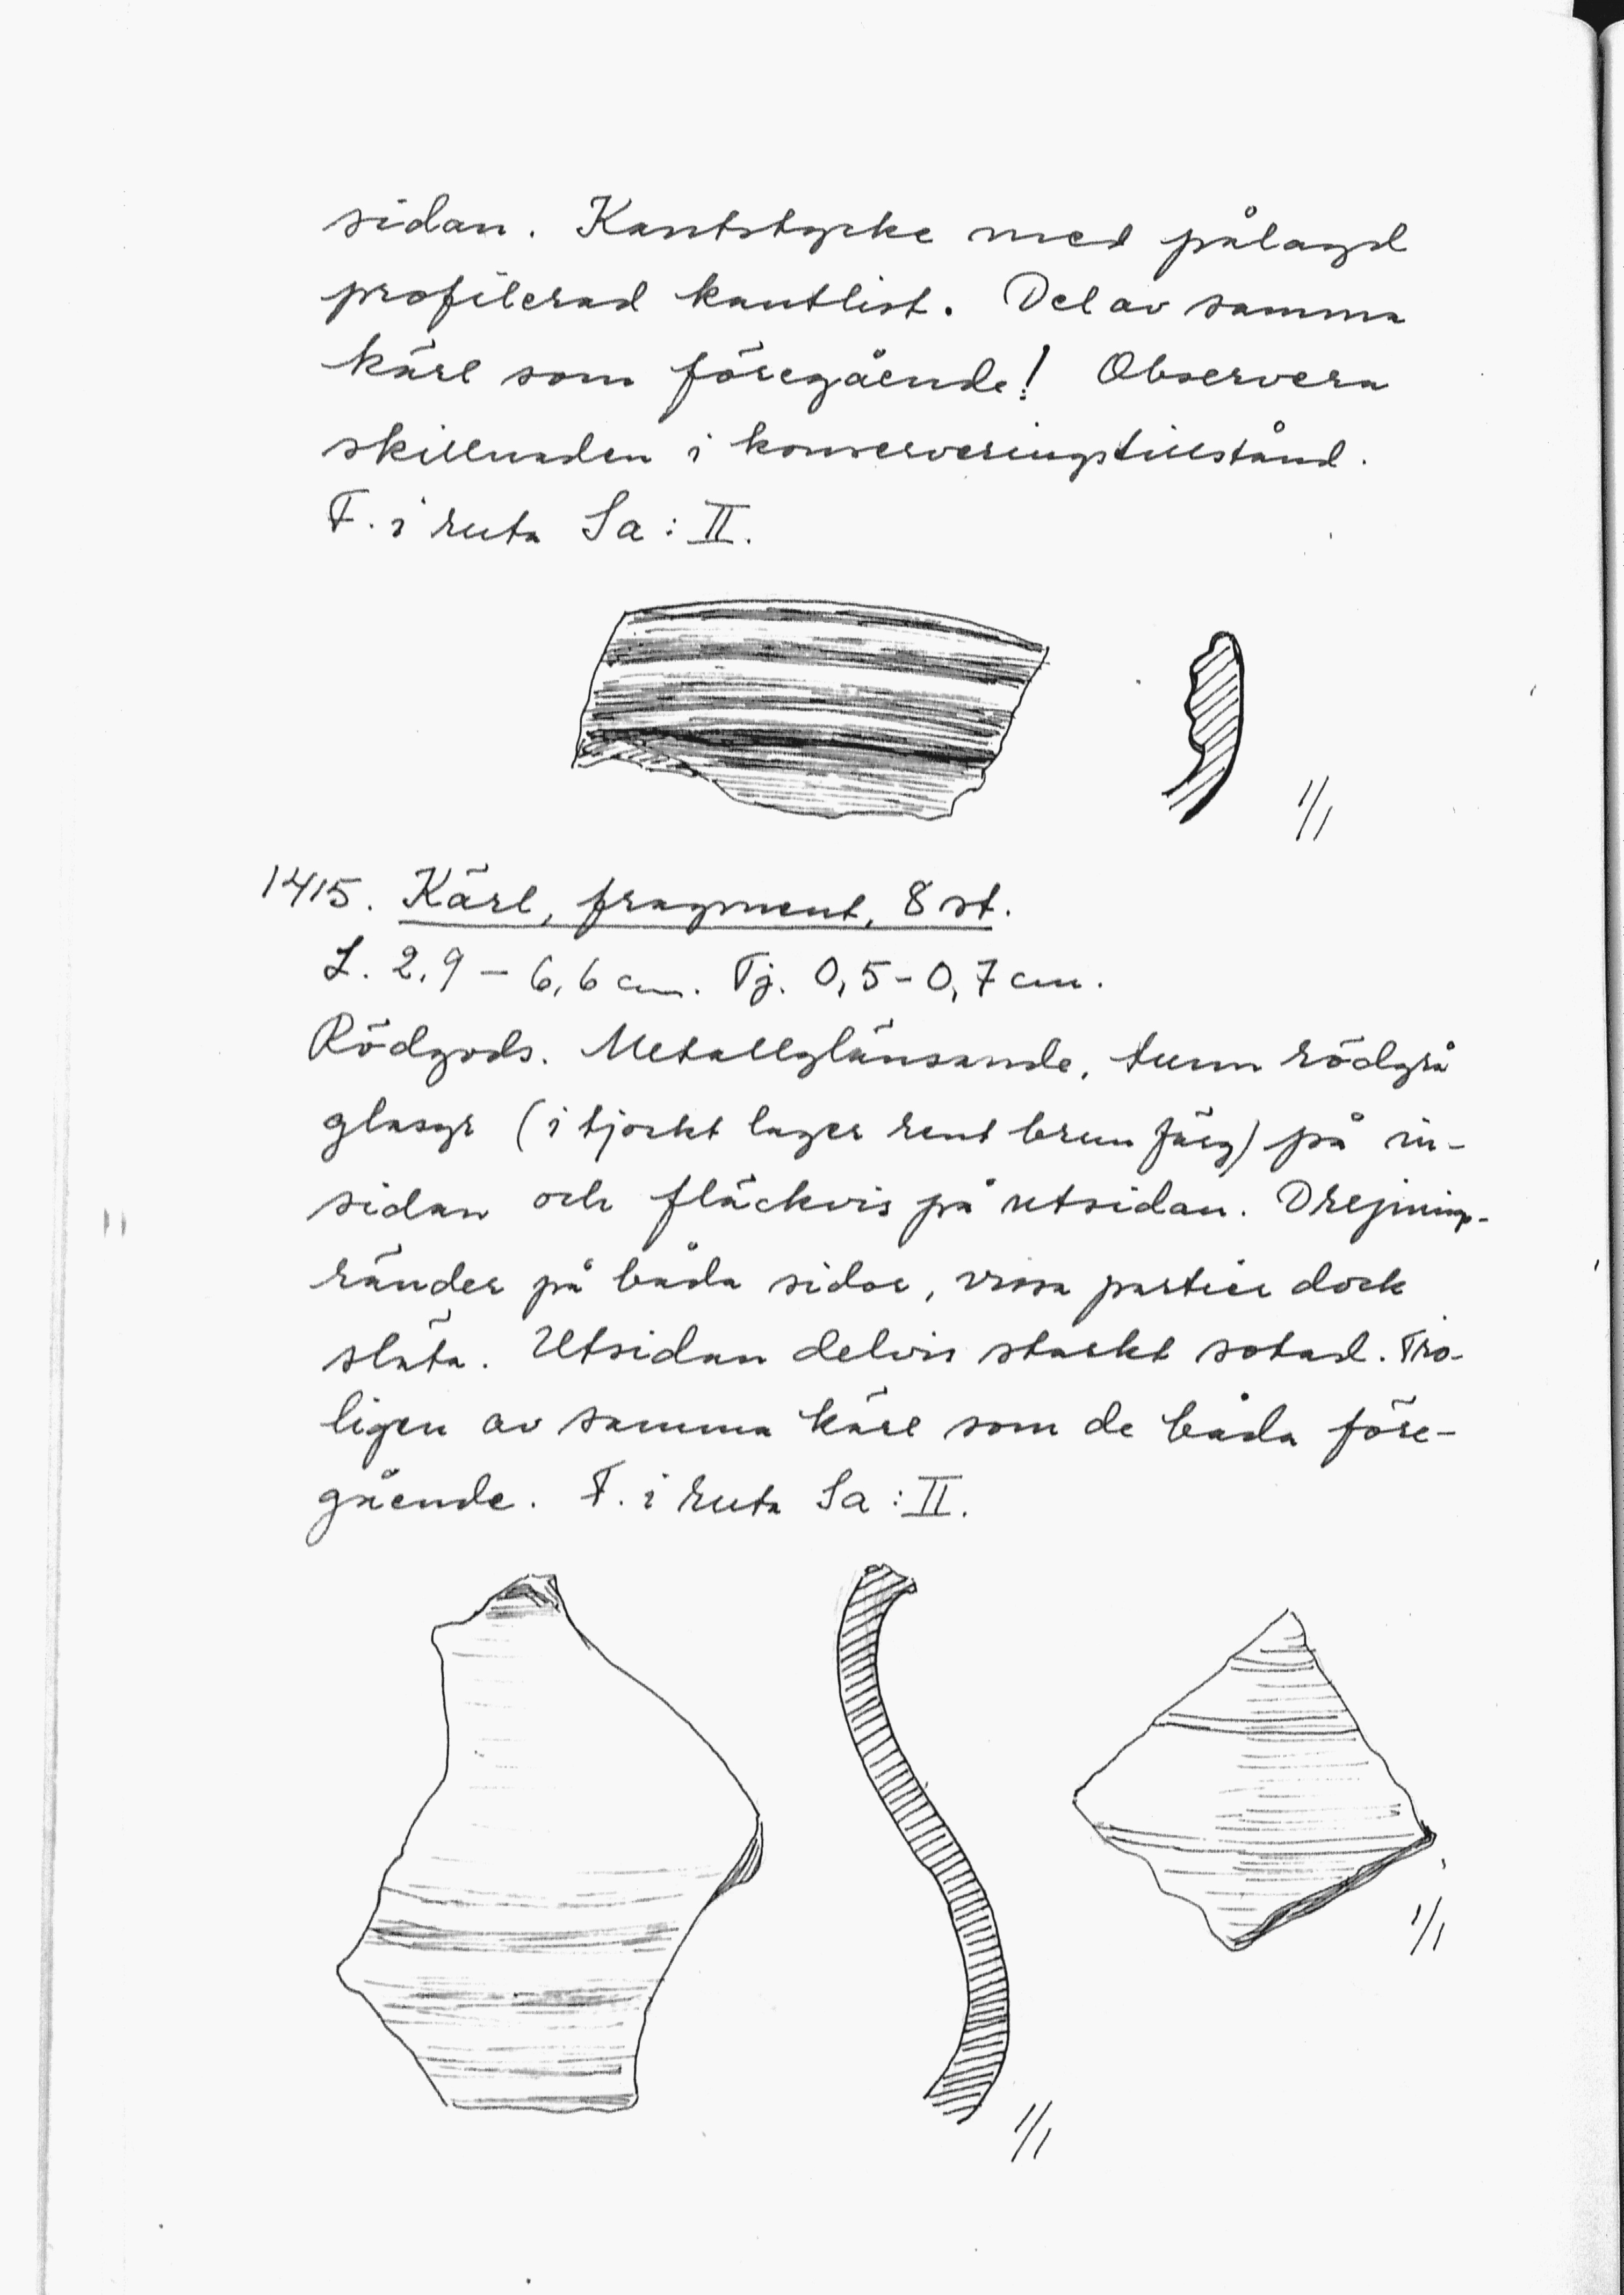 sidan. Kantstycke med pålagd
profilerad kantlist. Del av samma
kärl som föregående! Observera
skillnaden i konserveringstillstånd.
F. i ruta Sa : II.
1/1
1415. Kärl, fragment, 8 st.
L. 2,9 – 6,6 cm. Tj. 0,5 - 0,7 cm.
Rödgods. Metallglänsande, tunn rödgrå
glasyr (i tjockt lager rent brun färg) på in-
sidan och fläckvis på utsidan. Drejnings-
ränder på båda sidor, vissa partier dock
släta. Utsidan delvis starkt sotad. Tro-
ligen av samma kärl som de båda före-
gående. F. i ruta Sa : II.
1/1
1/1